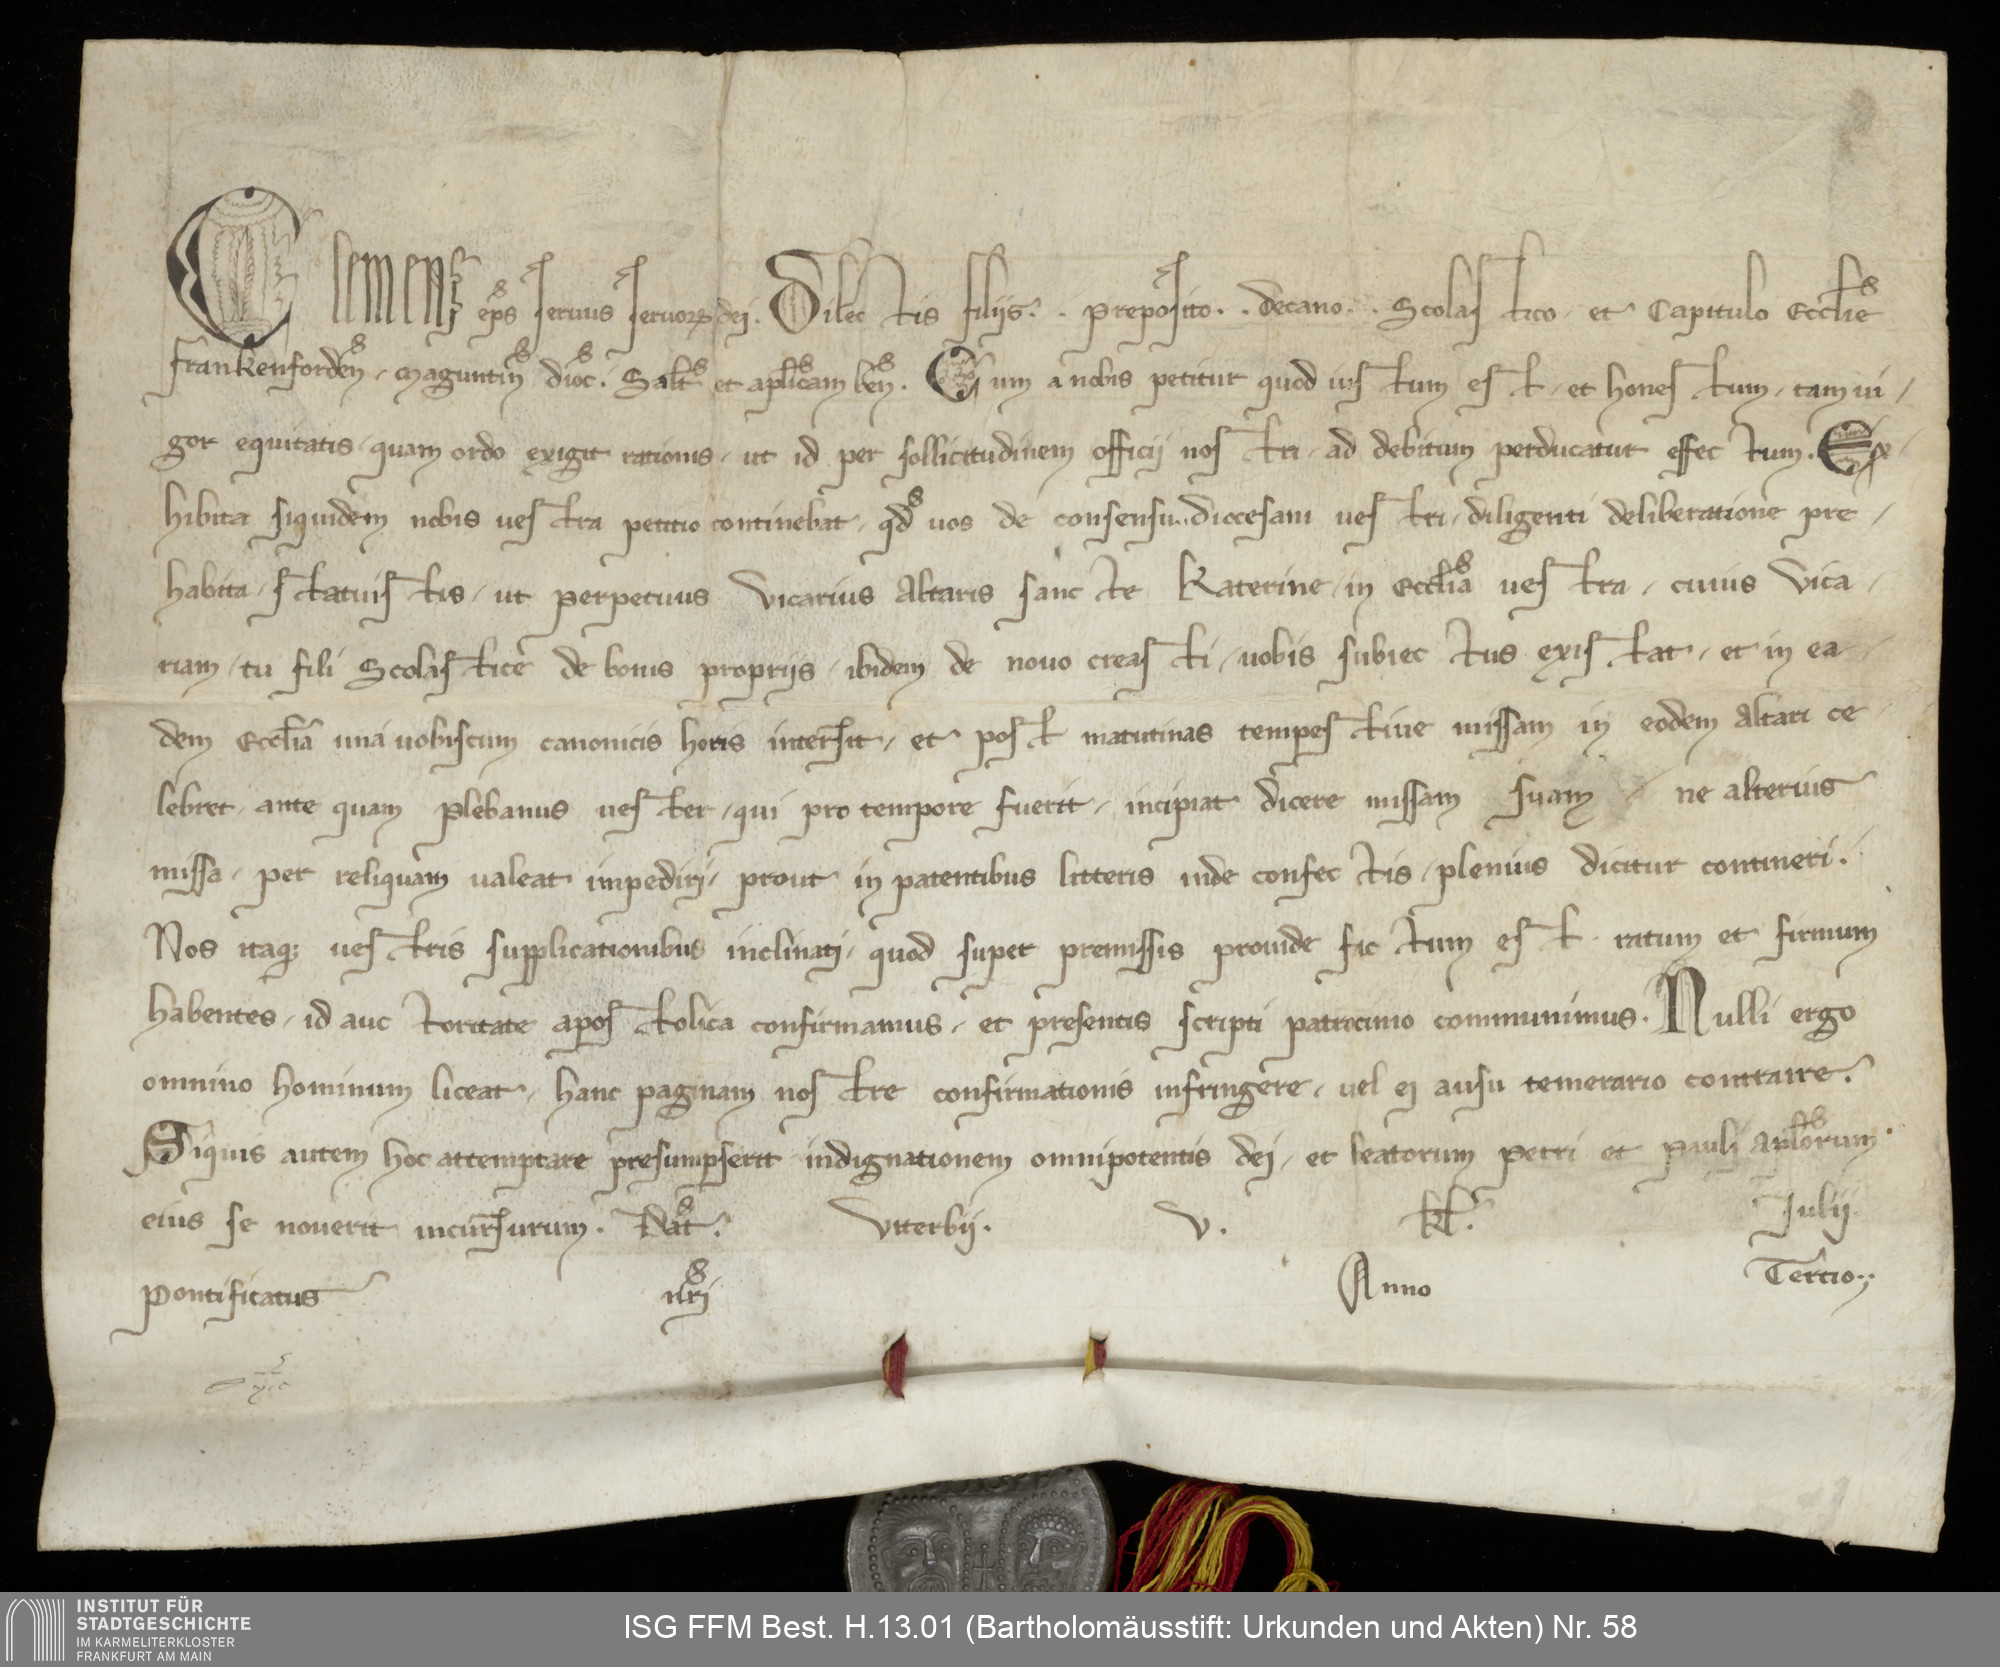 Clemens ep̄s seruus seruoꝝ dei. Dilectis filijs . . Preposito . . Decano . . Scolastico et Capitulo Eccl̄ie
Frankenforden̄, Maguntin̄ dioc̄. Salt̄ et aplīcam ben̄. Cum a nobis petitur quod iustum est, et honestum, tam ui-
gor equitatis, quam ordo exigit rationis, ut id per sollicitudinem officij nostri, ad debitum perducatur effectum. Ex-
hibita siquidem nobis uestra petitio continebat, qd̄ uos de consensu . . diocesani uestri, diligenti deliberatione pre-
habita, statuistis, ut perpetuus Vicarius Altaris sancte Katerine, in Eccl̄ia uestra, cuius Vica-
riam, tu fili Scolastice de bonis proprijs, ibidem de nouo creasti, uobis subiectus existat, et in ea-
dem Eccl̄ia una uobiscum canonicis horis intersit, et post matutinas tempestiue missam in eodem Altari ce-
lebret, ante quam Plebanus uester, qui pro tempore fuerit, incipiat dicere missam suam, ne alterius
missa, per reliquam ualeat impediri, prout in patentibus litteris inde confectis, plenius dicitur contineri.
Nos itaq; uestris supplicationibus inclinati, quod super premissis prouide fictum est, ratum et firmum
habentes, id auctoritate apostolica confirmamus, et presentis scripti patrocinio communimus. Nulli ergo
omnino hominum liceat, hanc paginam nostre confirmationis infringere, uel ei ausu temerario contraire.
Siquis autem hoc attemptare presumpserit indignationem omnipotentis dei, et beatorum Petri et Pauli Apl̄orum
eius se nouerit incursurum. Dat̄. Viterbij. V. kl̄. Iulij
Pontificatus nr̄i Anno Tertio.
INSTITUT FÜR
STADTGESCHICHTE
IM KARMELITERKLOSTER
FRANKFURT AM MAIN
ISG FFM Best. H.13.01 (Bartholomäusstift: Urkunden und Akten) Nr. 58